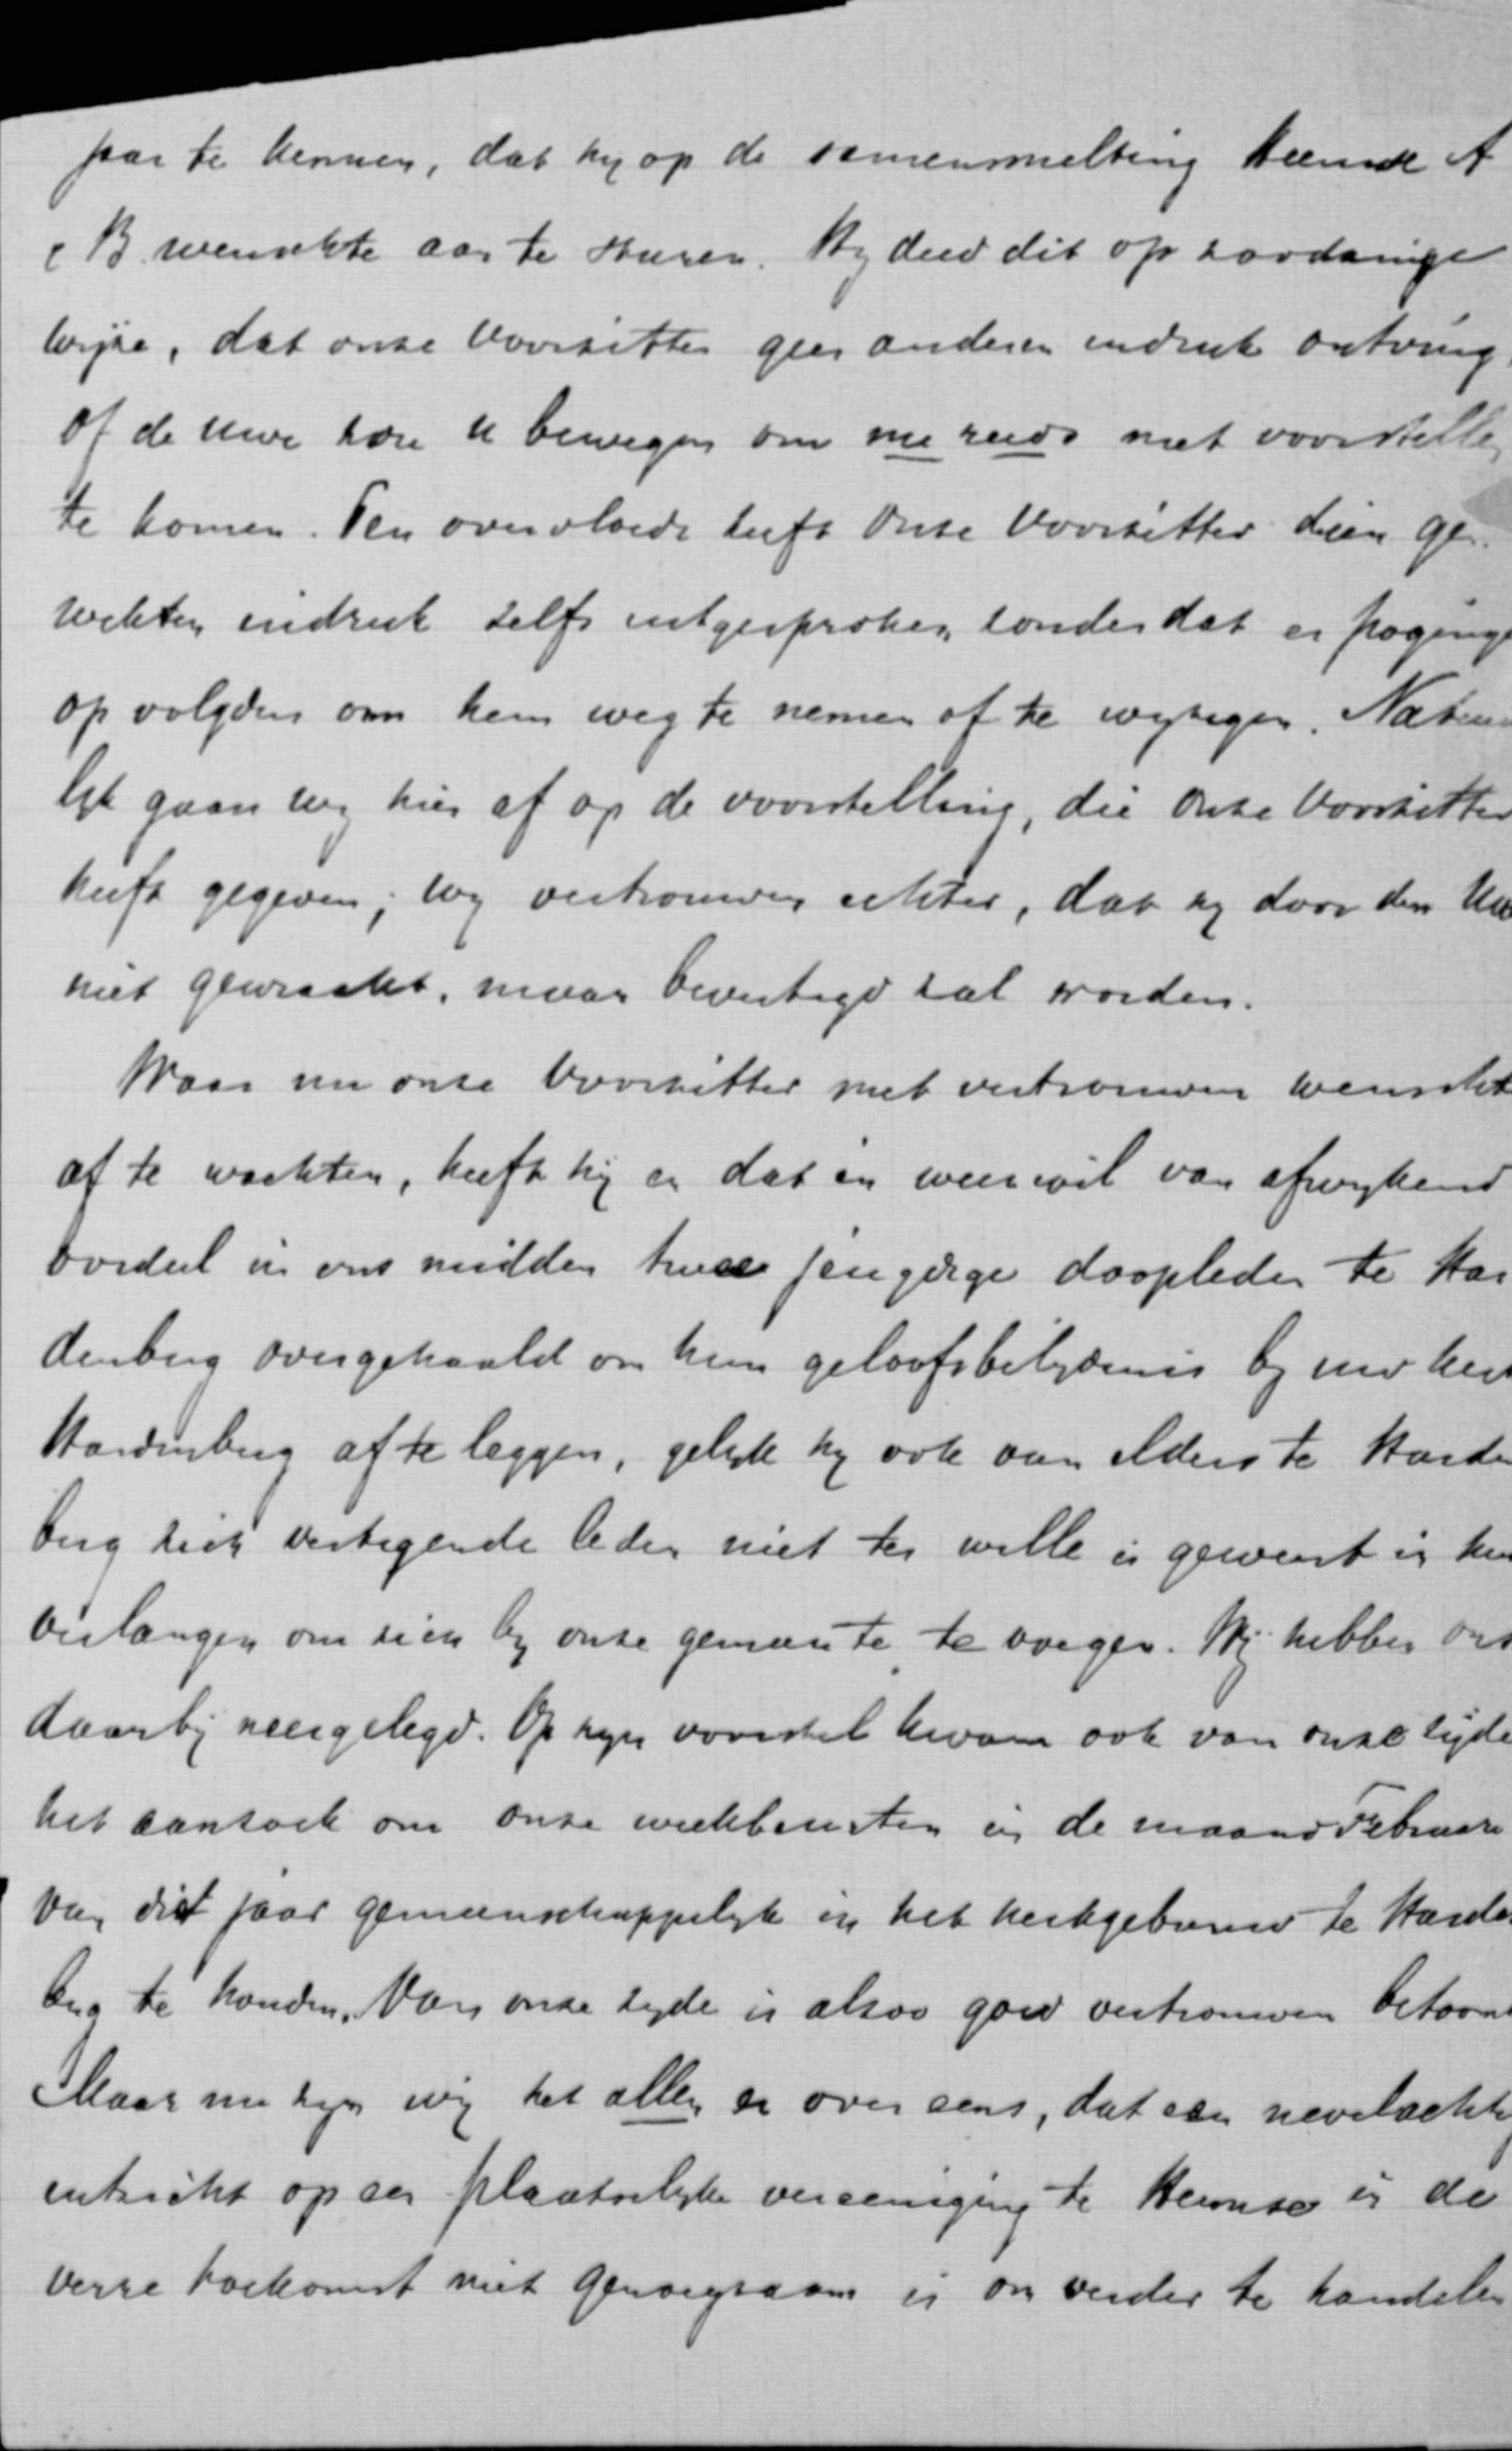 te kennen, dat hy op de samensmelting Heemse A
& B wenschte aan te sturen. Hy deed dit op zoodanige
wijze, dat onze Voorzitter geen anderen indruk ontving,
of de Uwe zou U bewegen om nu reeds met voorstellen
te komen. Ten overvloede heeft onze Voorzitter dien ge-
wekten indruk zelfs uitgesproken, zonder dat er poginge
op volgden om hem weg te nemen of te wyzigen. Natuur
lyk gaan wy hier af op de voorstelling, die onze Voorzitter
heeft gegeven; wy vertrouwen echter, dat zy door den Uwe
niet gewraakt, maar bevestigd zal worden.
Waar nu onze Voorzitter met vertrouwen wenscht
af te wachten, heeft hij er dat in weerwil van afwykend
oordeel in ons midden twee jeugdige doopleden te Har
denberg overgehaald om hun geloofsbelydenis by uw kerk
Hardenberg af te leggen, gelyk hy ook aan elders te Harden
berg zich vestigende leden niet ter wille is geweest in hun
verlangen om zich by onze gemeente te voegen. Wij hebben ons
daarbij neergelegd. Op zyn voorstel kwam ook van onze zijde
het aanzoek om onze weekbeurten in de maand Februari
van dit jaar gemeenschappelyk in het kerkgebouw te Harden
berg te houden. Van onze zyde is alzoo goed vertrouwen betoond
Maar nu zyn wij het allen er over eens, dat een nevelachtig
uitzicht op een plaatselyke vereeniging te Heemse in de
verre toekomst niet genoegzaam is om verder te handelen